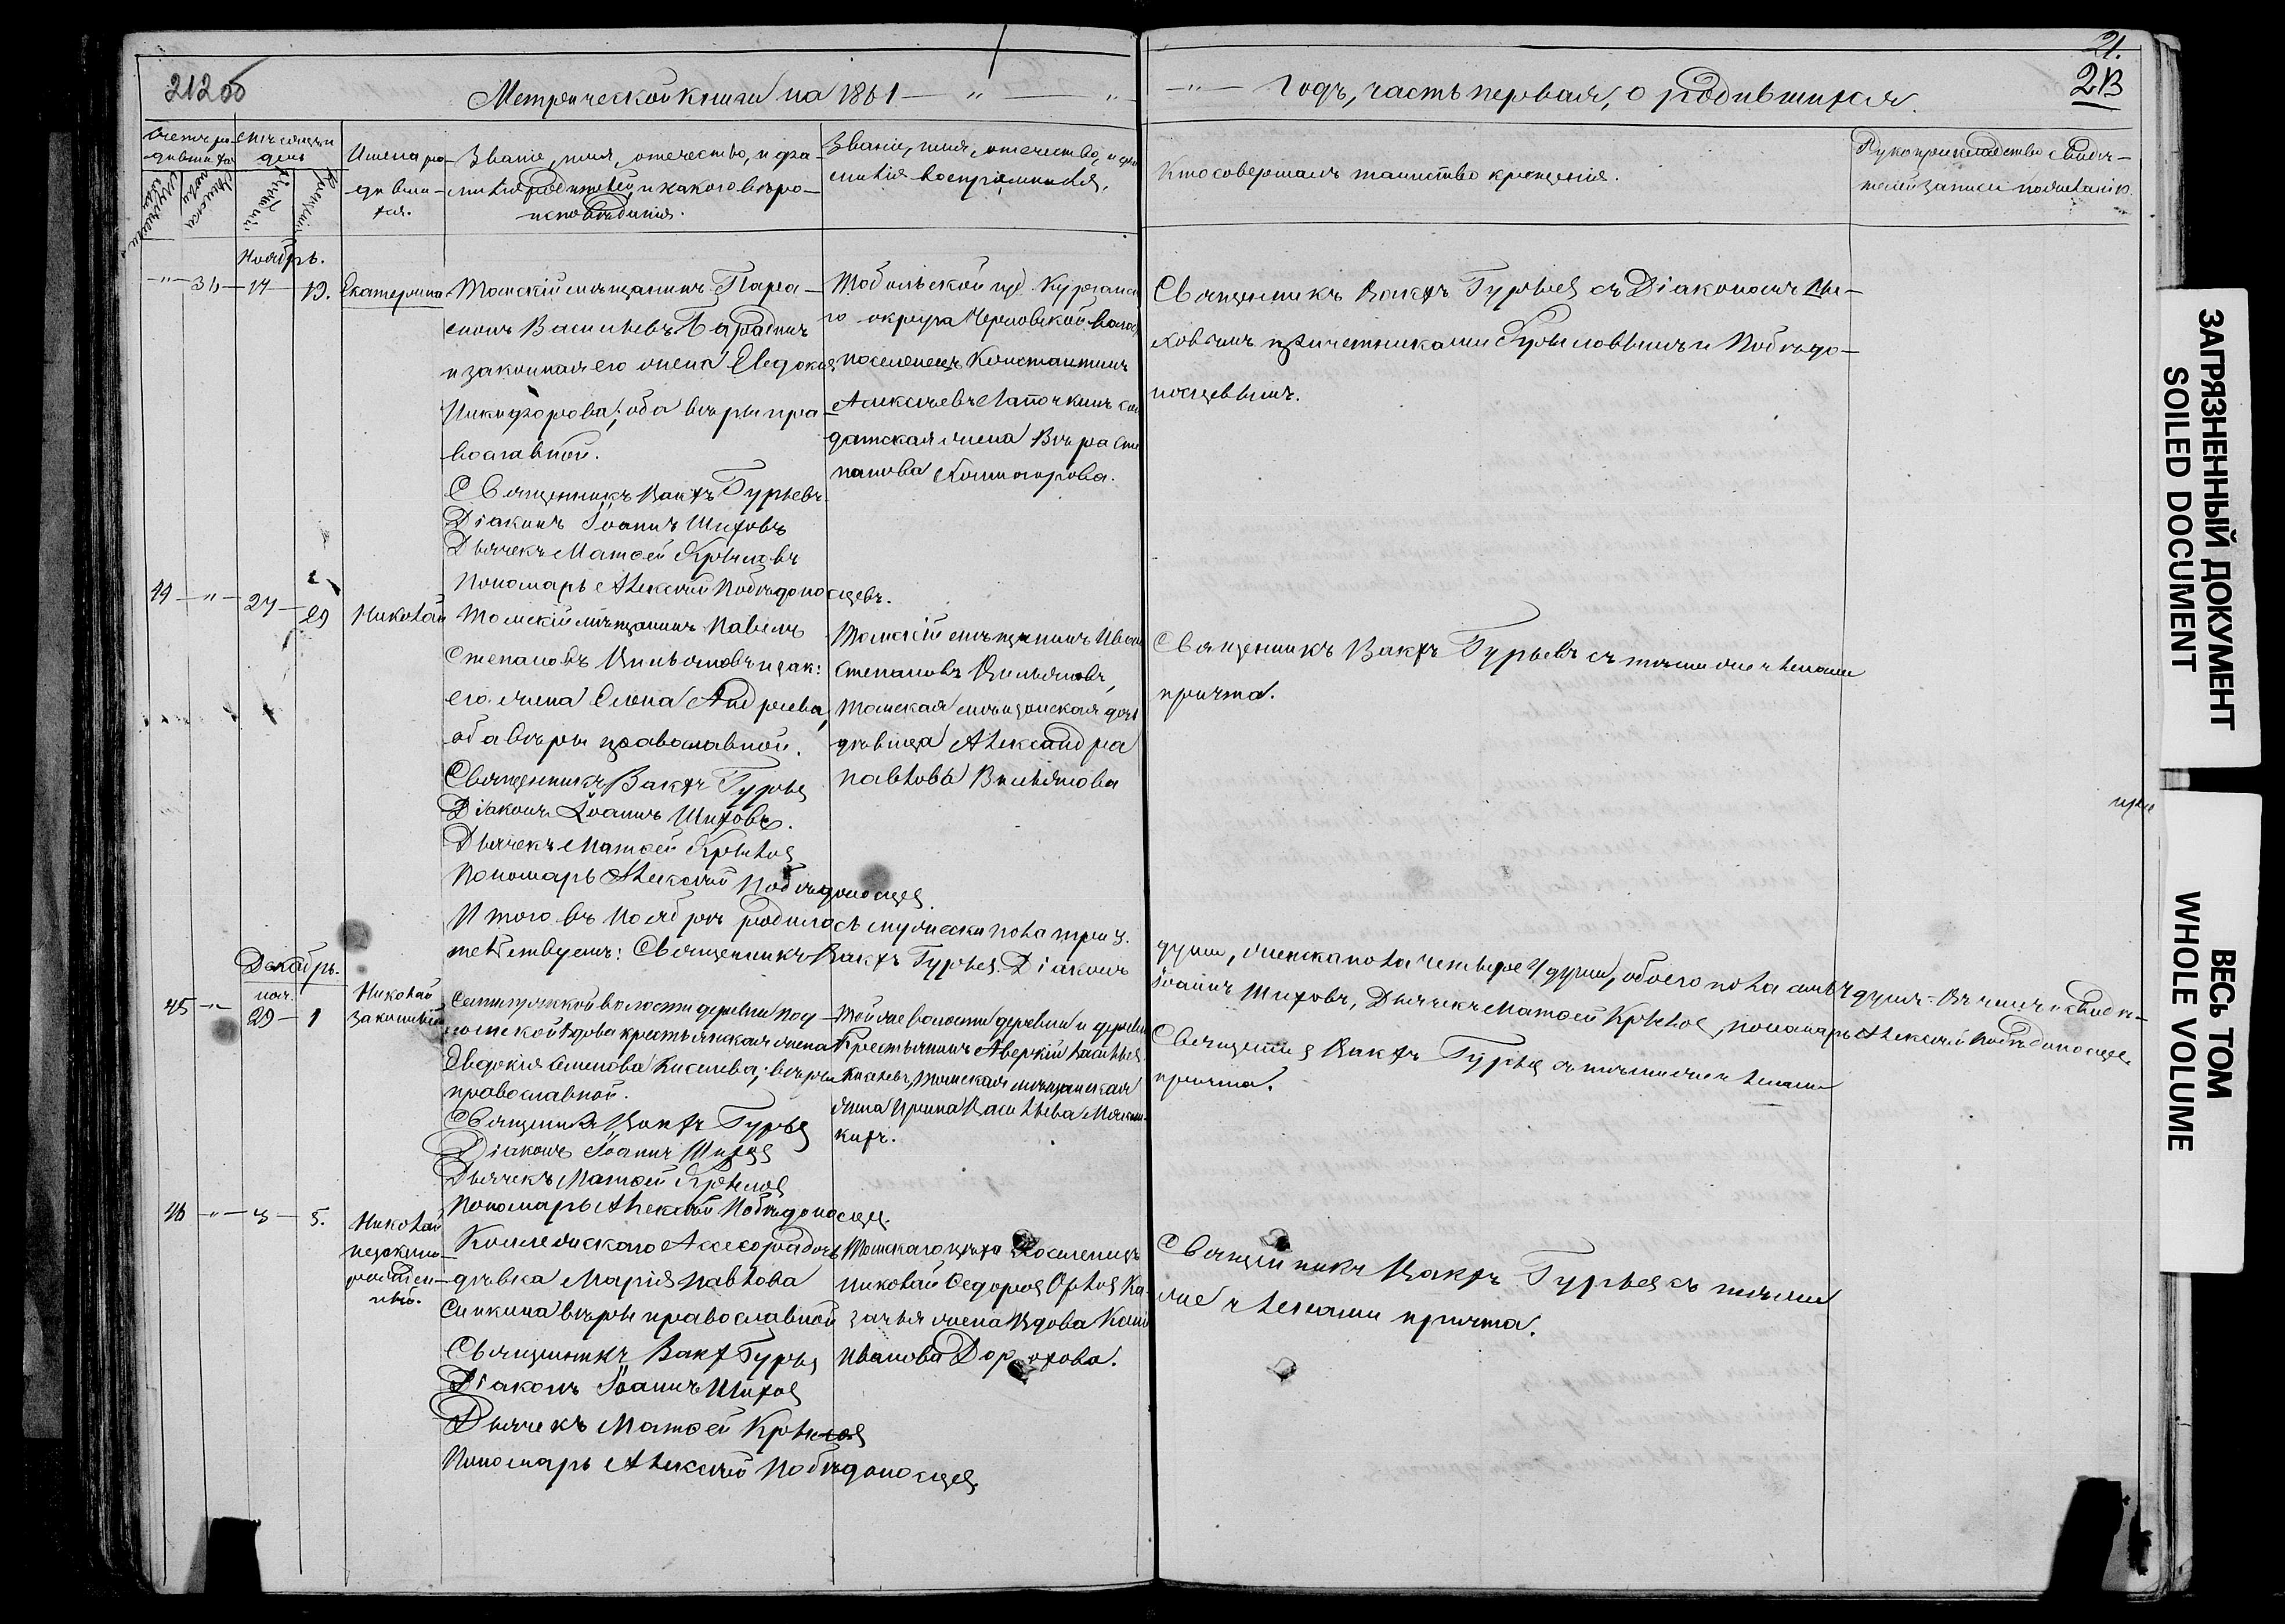 212 об
Метрической книги на 1861 — „ — „
— „ — годъ, часть первая, о родившихся.
21.
213
Счетъ ро-
дившихся
Мѣсяцъ и
день
Имена ро-
дивши-
хся.
Званіе, имя, отечество, и фа-
милія родителей и какого вѣро-
исповѣданія.
Званіе, имя, отечество, и фа-
милія воспріемниковъ.
Кто совершалъ таинство крещенія.
Рукоприкладство свидѣ-
телей записи по желанію.
Ноябрь.
„ — 36 — 17 — 19. Екатерина
Томскій мѣщанинъ Пара-
и законная его жена Евдокія
Никифорова; оба вѣры пра-
вославной.
Священникъ Вакхъ Гурьевъ
Діаконъ Іоаннъ Шиховъ
Дьячекъ Матѳей Крыловъ
Пономарь Алексѣй Побѣдоносцевъ.
Тобольской губ. Курганска-
го округа
поселенецъ Константинъ
Алексѣевъ Лапочкинъ сол-
датская жена Вѣра Сте-
панова
Священникъ Вакхъ Гурьевъ съ Діакономъ Ши-
ховымъ причетниками Крыловымъ и Побѣдо-
носцевымъ.
44 — „ — 27 — 29 Николай
Томскій мѣщанинъ Павелъ
Степановъ Вильяновъ и зак:
его жена Елена Андреева,
оба вѣры православной.
Священникъ Вакхъ Гурьевъ
Діаконъ Іоаннъ Шиховъ.
Дьячекъ Матѳей Крыловъ
Пономарь Алексѣй Побѣдоносцевъ.
Томскій мѣщанинъ Иванъ
Степановъ Вильяновъ,
Томская мѣщанская дочь
дѣвица Александра
Павлова Вильянова
Священникъ Вакхъ Гурьевъ съ тѣми же членами
причта.
Итого въ Ноябрѣ родилось мужеска пола три 3.
души, женска пола четыре 4 души, обоего пола семь 7 душъ. Въ чемъ и свидѣ-
тельствуемъ: Священникъ Вакхъ Гурьевъ. Діаконъ
Іоаннъ Шиховъ, Дьячекъ Матѳей Крыловъ, пономарь Алексѣй Побѣдоносцевъ.
Декабрь.
ноя.
45 — „ — 29 — 1 Николай
законный
Семилужной волости деревни Под-
ломской вдова крестьянская жена
Евдокія Семенова Киселева; вѣры
православной.
Священникъ Вакхъ Гурьевъ
Діаконъ Іоаннъ Шиховъ
Дьячекъ Матѳей Крыловъ
Пономарь Алексѣй Побѣдоносцевъ.
Той же волости деревни и деревни
Крестьянинъ Аверкій Васильевъ
Томская мѣщанская
жена Ирина Васильева
кихъ.
Священникъ Вакхъ Гурьевъ съ тѣми же членами
причта.
46 — „ — 3 — 5. Николай
незаконно-
рожден-
ный.
Коллежскаго Ассесора дочь
дѣвка Марія Павлова
Синкина вѣры православной
Священникъ Вакхъ Гурьевъ
Діаконъ Іоаннъ Шиховъ
Дьячекъ Матѳей Крыловъ
Пономарь Алексѣй Побѣдоносцевъ.
Томскаго цеха Поселенецъ
Николай Ѳедоровъ Орловъ Ка-
зачья жена вдова
Иванова Дорохова.
Священникъ Вакхъ Гурьевъ съ тѣми
же членами причта.
ЗАГРЯЗНЕННЫЙ ДОКУМЕНТ
SOILED DOCUMENT
ВЕСЬ ТОМ
WHOLE VOLUME